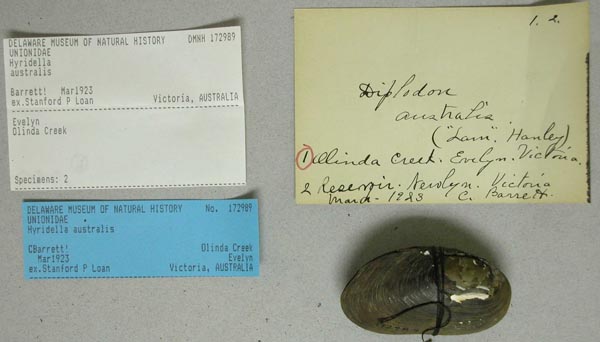 DELAWARE MUSEUM OF NATURAL HISTORY DMNH 172989
UNIONIDAE
Hyridella
australis
Barrett! Mar1923
ex.Stanford P Loan Victoria, AUSTRALIA
Evelyn
Olinda Creek
Specimens: 2
DELAWARE MUSEUM OF NATURAL HISTORY No. 172989
UNIONIDAE
Hyridella australis
CBarrett! Olinda Creek
Mar1923 Evelyn
ex.Stanford P Loan Victoria, AUSTRALIA
1. 2.
Diplodon
australis
("Lam". Hanley)
1 Ollinda Creek. Evelyn. Victoria.
2 Reservoir. Newlyn. Victoria
March - 1923 C. Barrett.